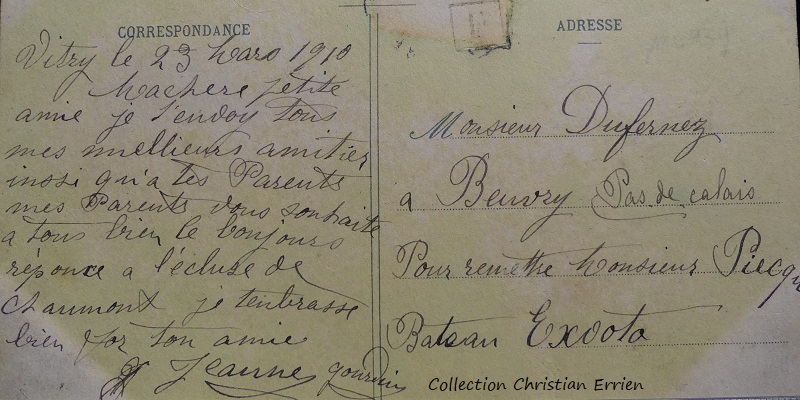 CORRESPONDANCE
Vitry le 23 Mars 1910
Machere petite
amie je t'envoy tous
mes meellieurs amitier
inssi qu'a tes Parents
mes Parents vous souhaite
a tous bien le bonjours
réponce a l'écluse de
Chaumont je tenbrasse
bien for ton amie
Jeanne gourdin
ADRESSE
Monsieur Dufernez
à Beuvry Pas de calais
Pour remettre Monsieur Piecq
Bateau Exvoto
Collection Christian Errien